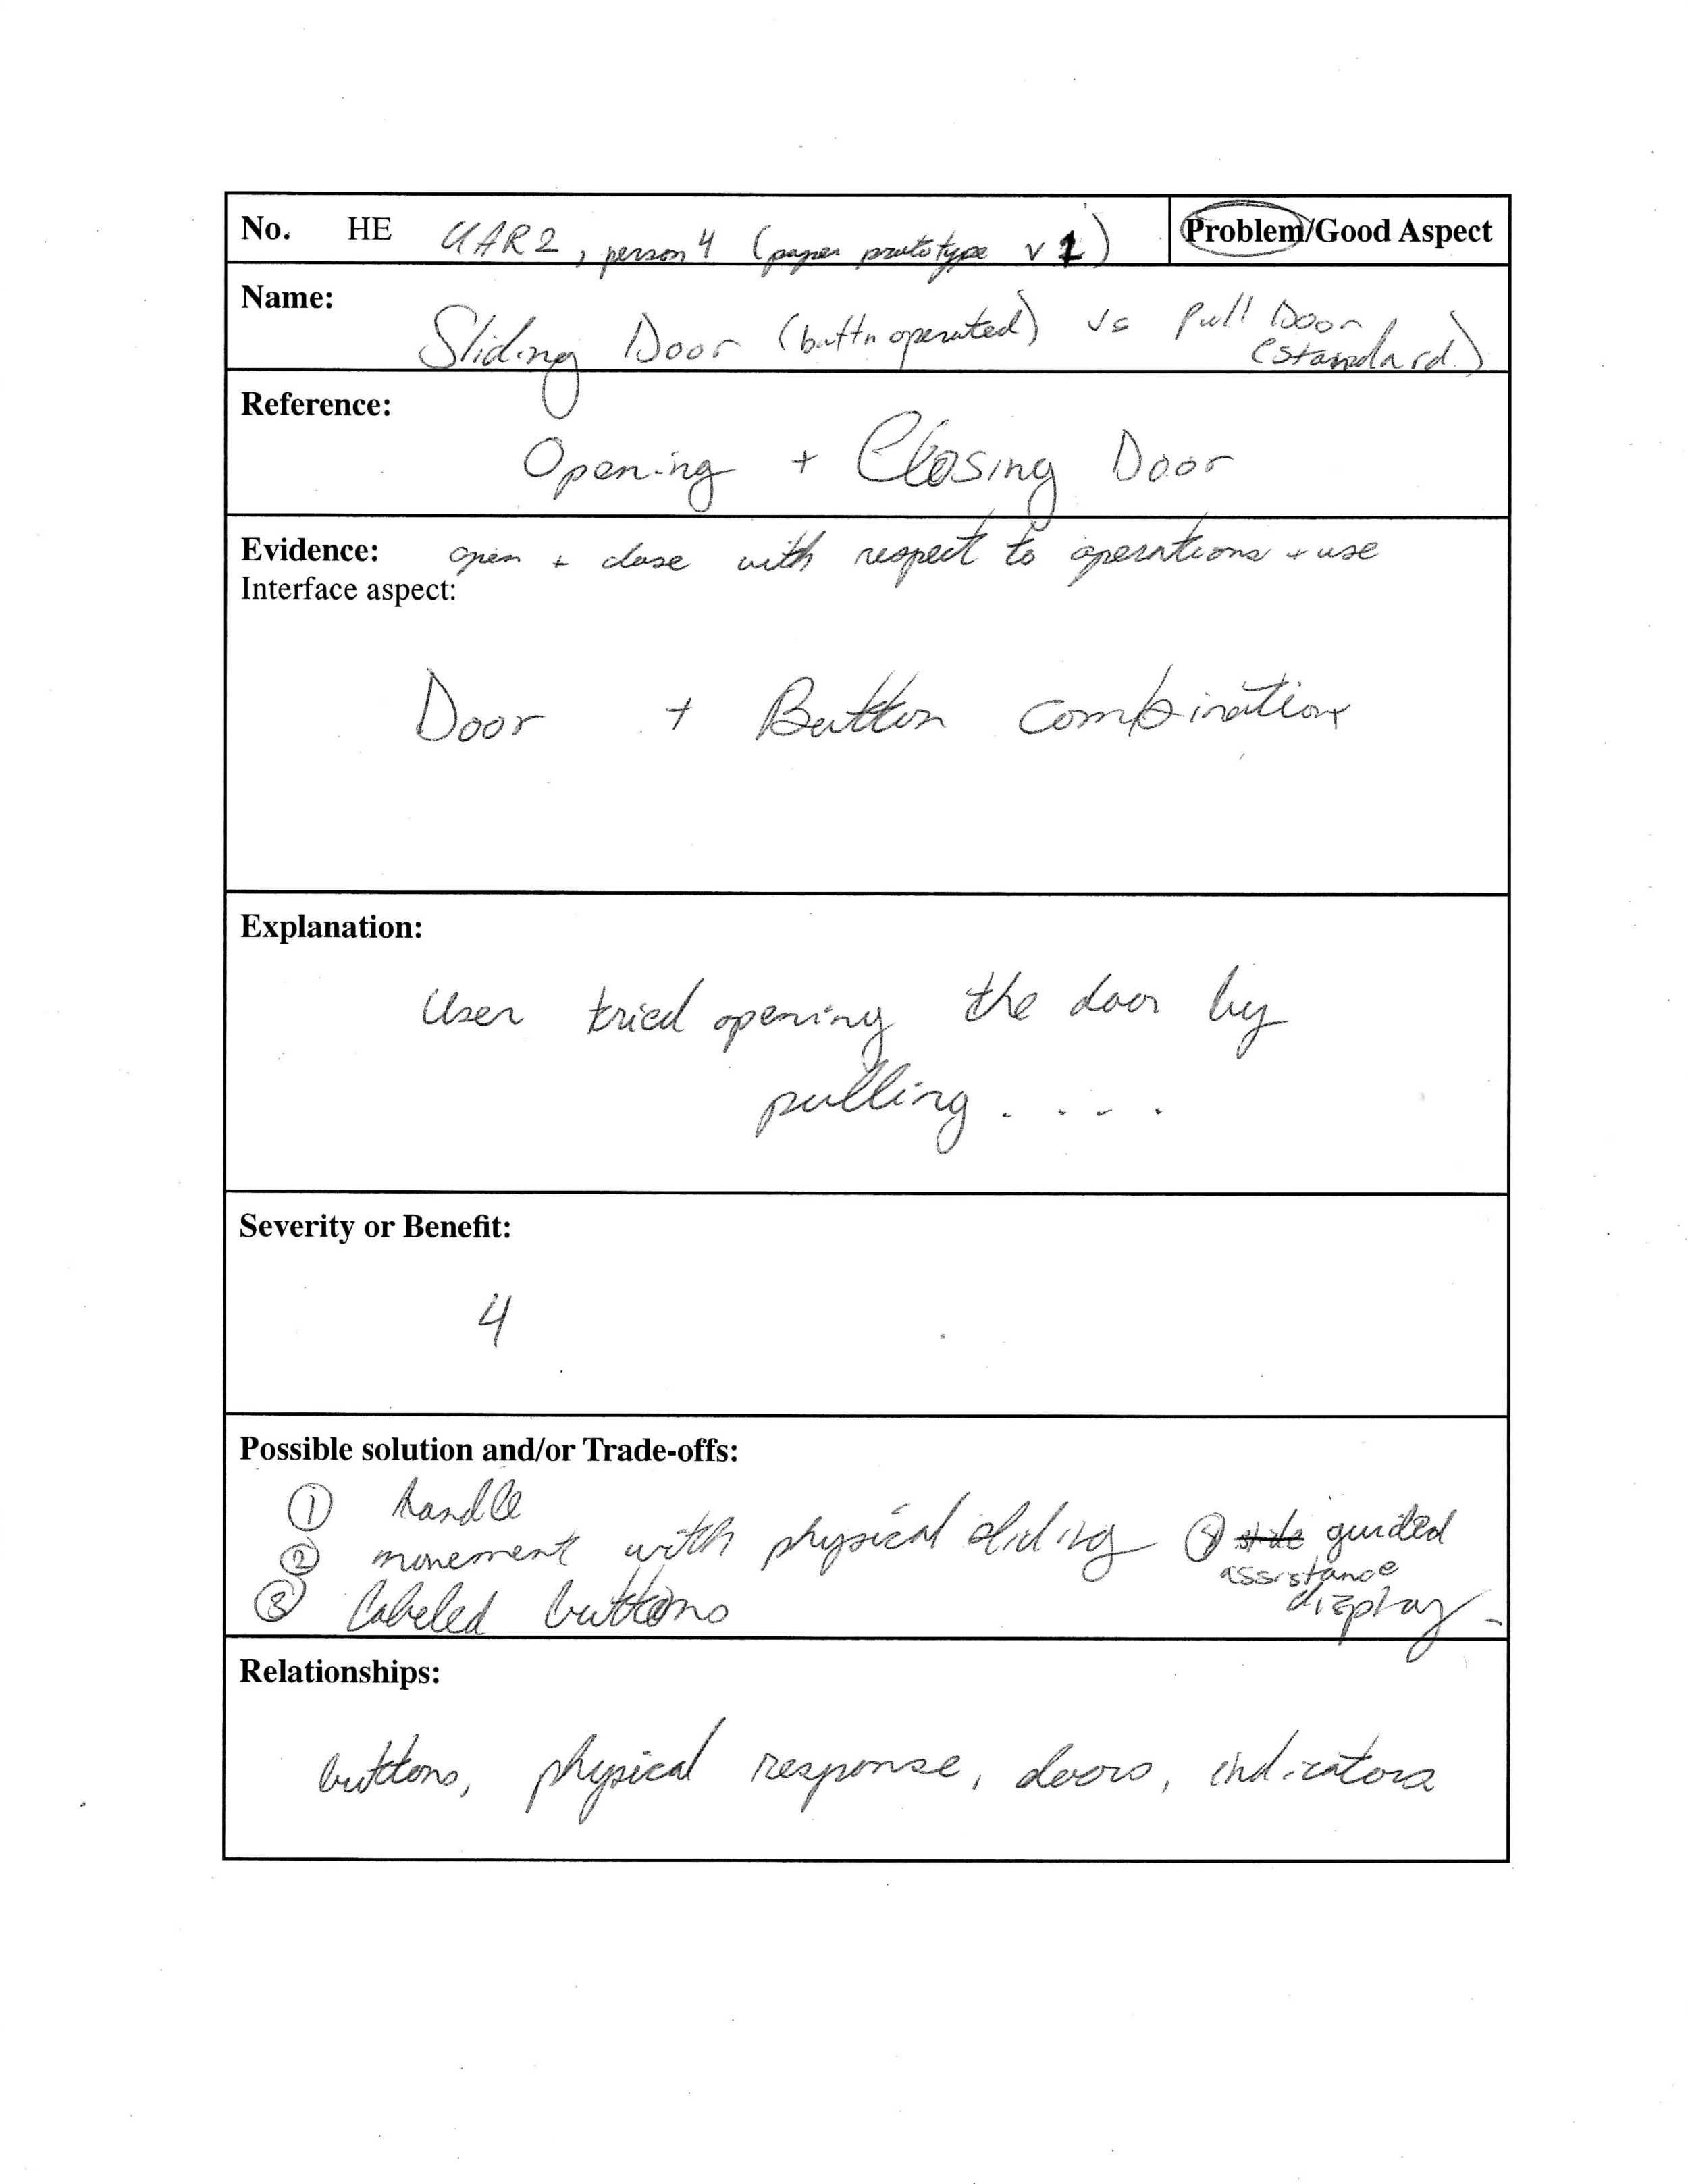 No. HE UAR2, person 4 (paper prototype v 1) Problem/Good Aspect
Name:
Sliding Door (buttn operated) vs pull Door
(standard)
Reference:
Opening + Closing Door
Evidence: open + close with respect to operations + use
Interface aspect:
Door + Button combination
Explanation:
User tried opening the door by
pulling . . . .
Severity or Benefit:
4
Possible solution and/or Trade-offs:
① handle
② movement with physical sliding ④ guided
assistance
③ labeled buttons display
Relationships:
buttons, physical response, doors, indicators